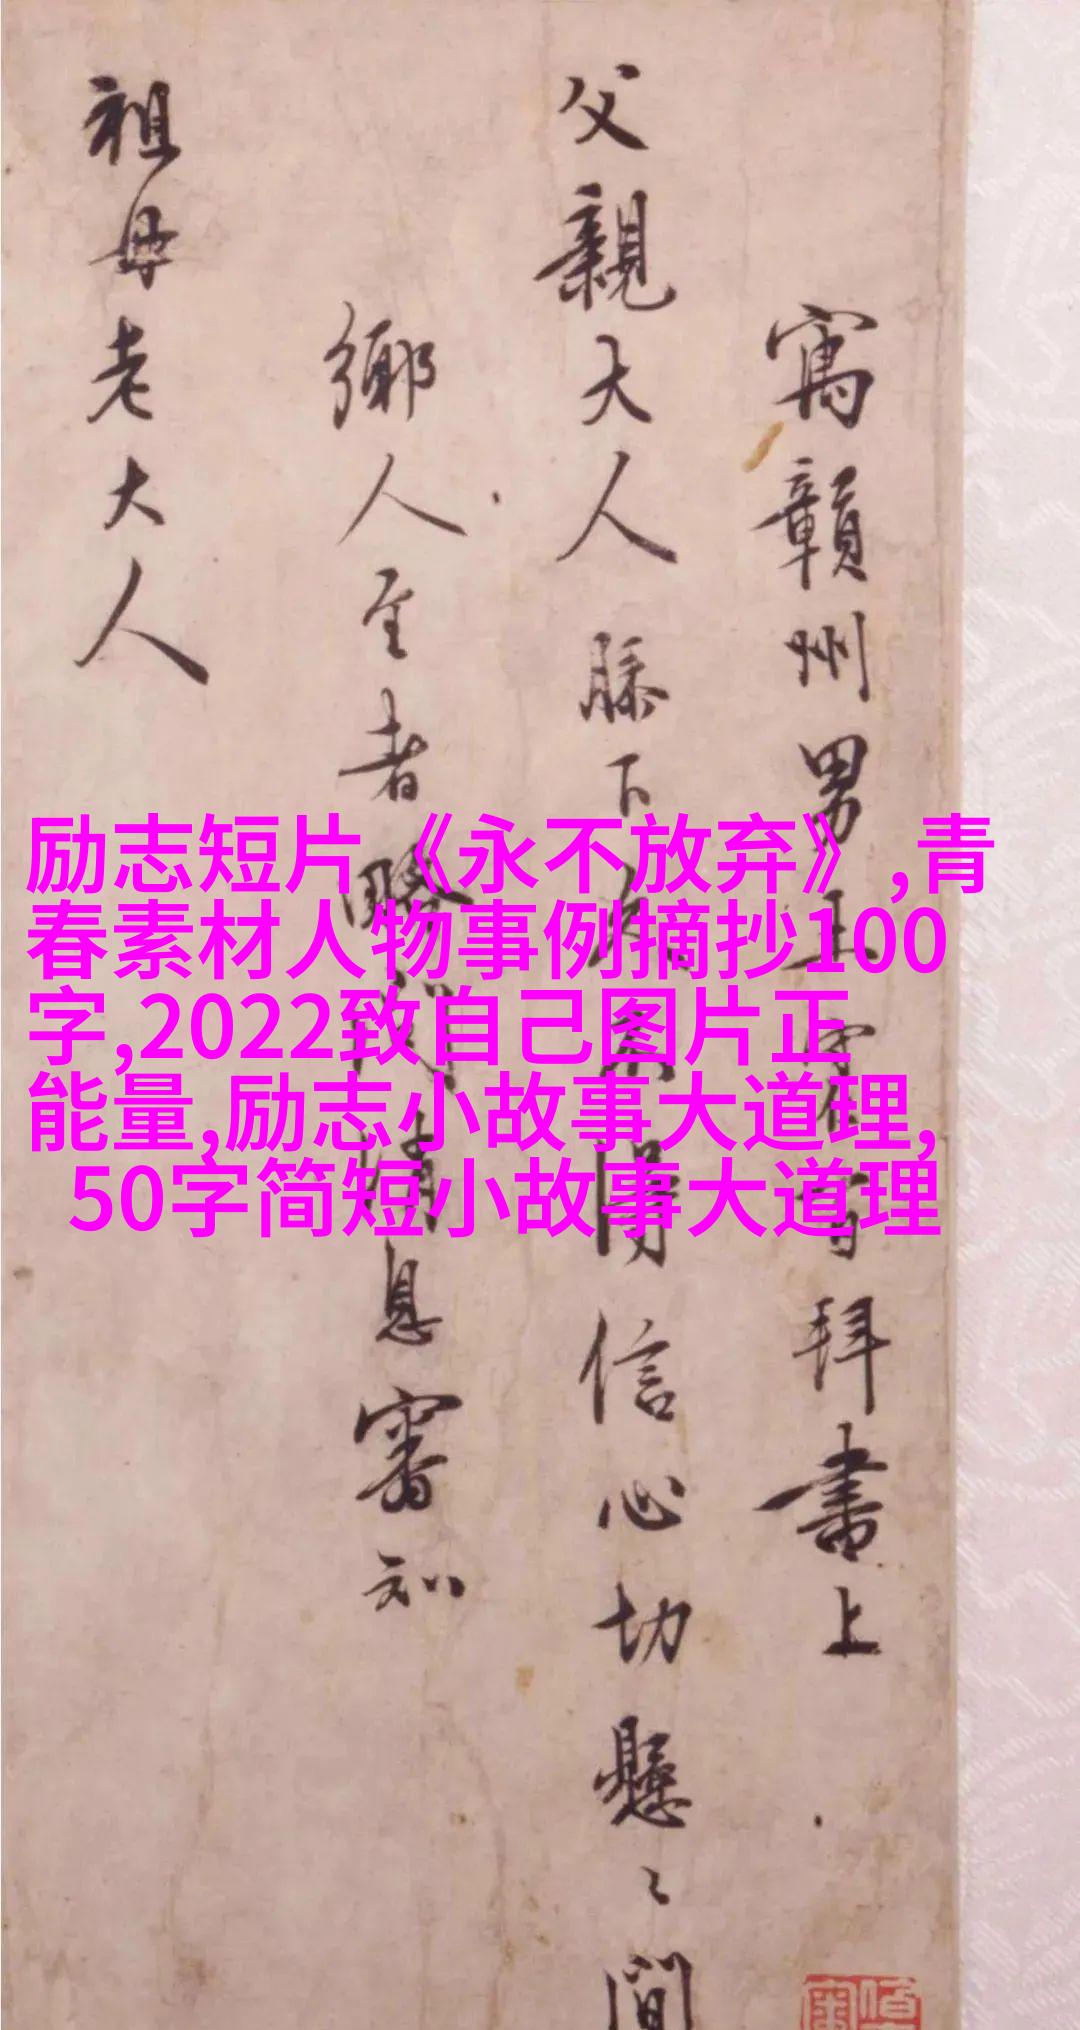 寓贛州男王守仁百拜書上
父親大人膝下得信心切懸〻間
鄉人至者消息審知
祖母老大人
励志短片《永不放弃》,青
春素材人物事例摘抄100
字,2022致自己图片正
能量,励志小故事大道理,
50字简短小故事大道理